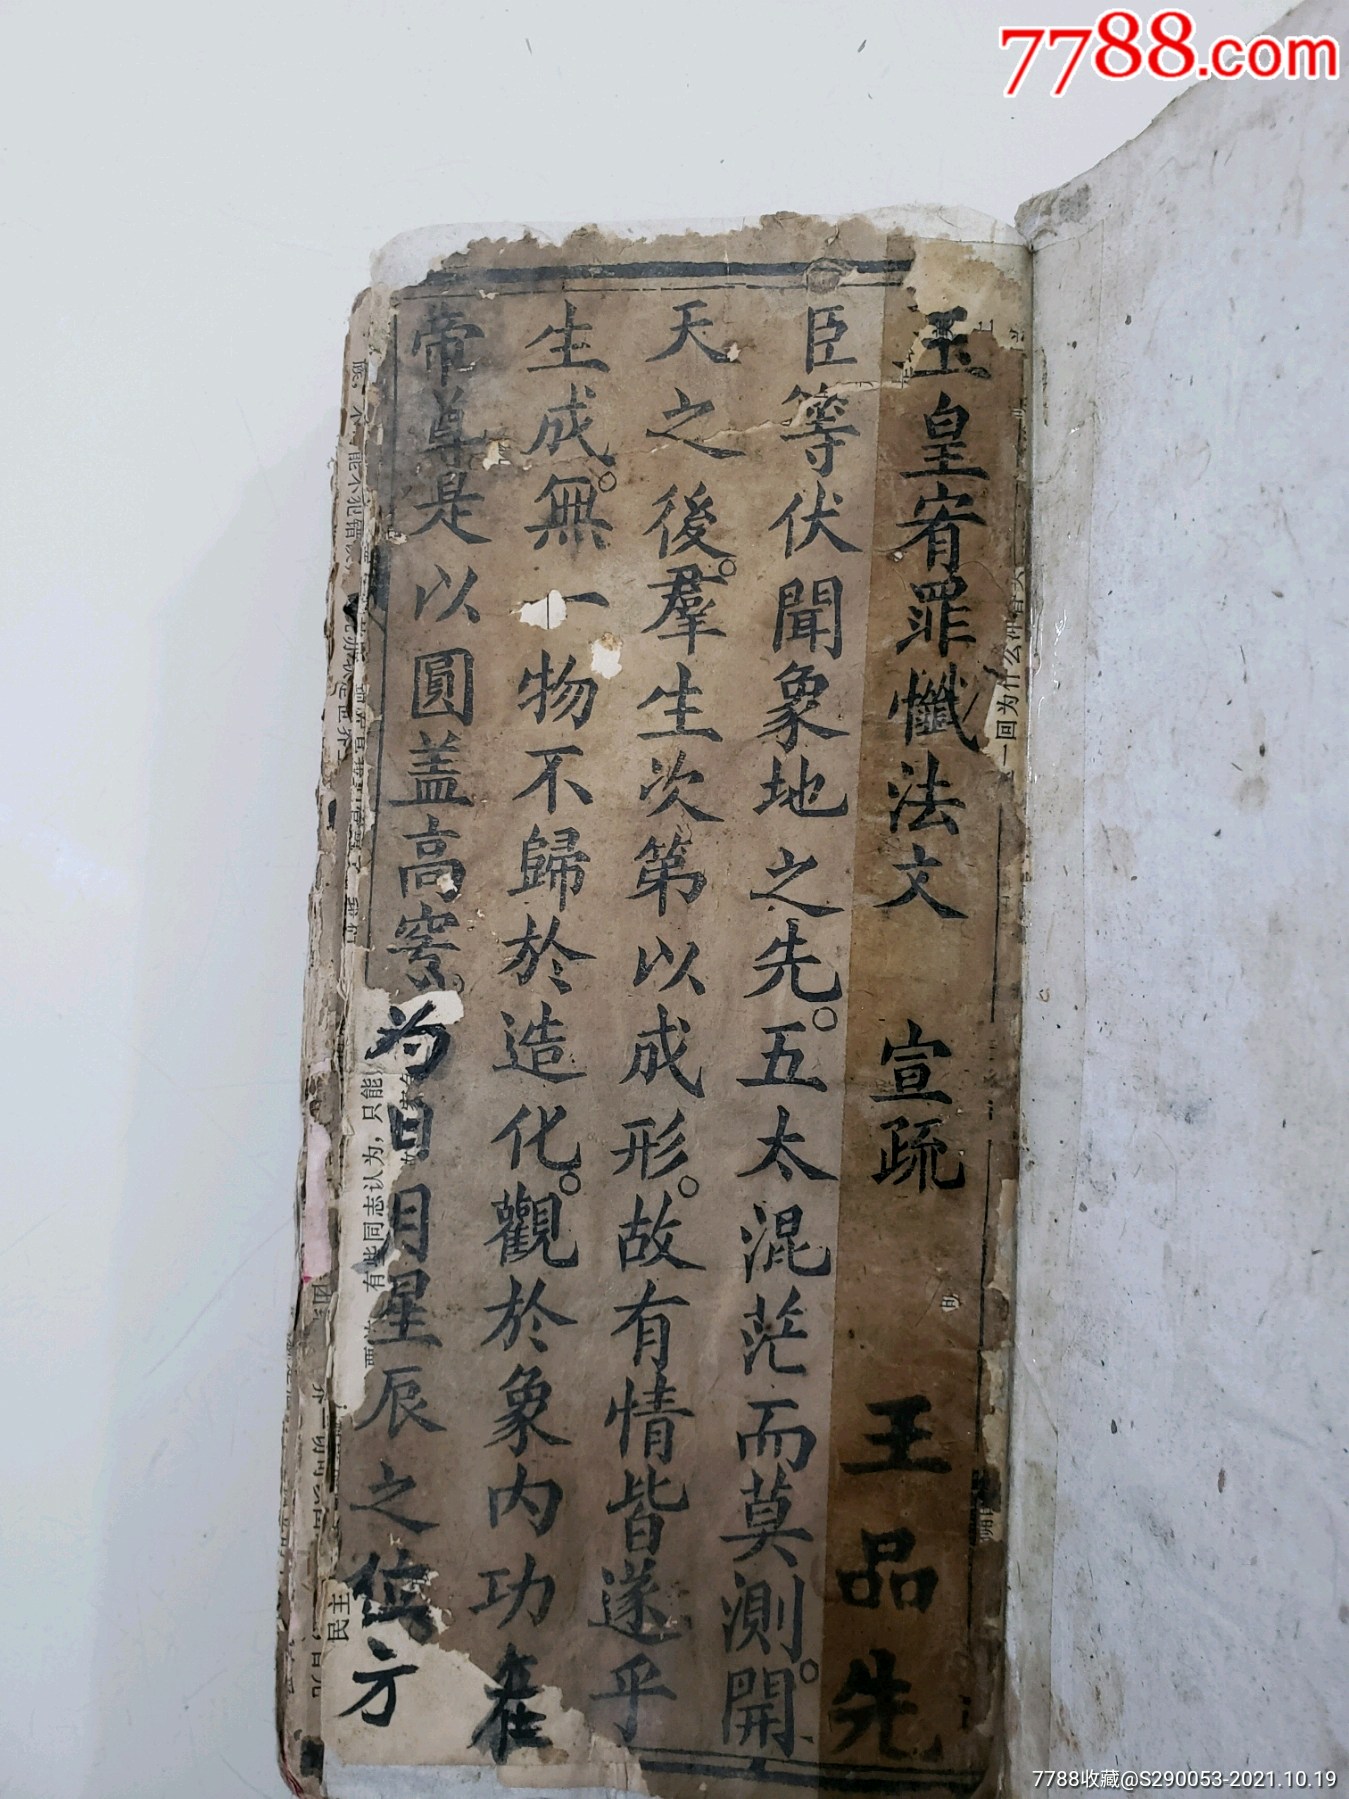 7788.com
玉皇宥罪懺法文 宣疏 王品先
臣等伏聞象地之先。五太混茫而莫測。開
天之後。羣生次第以成形。故有情皆遂乎
生成。無一物不歸於造化。觀於象内功在
帝尊是以圓盖高穹。为日月星辰之位方
一回为什么
有些同志认为，只能
民主
7788收藏@S290053-2021.10.19